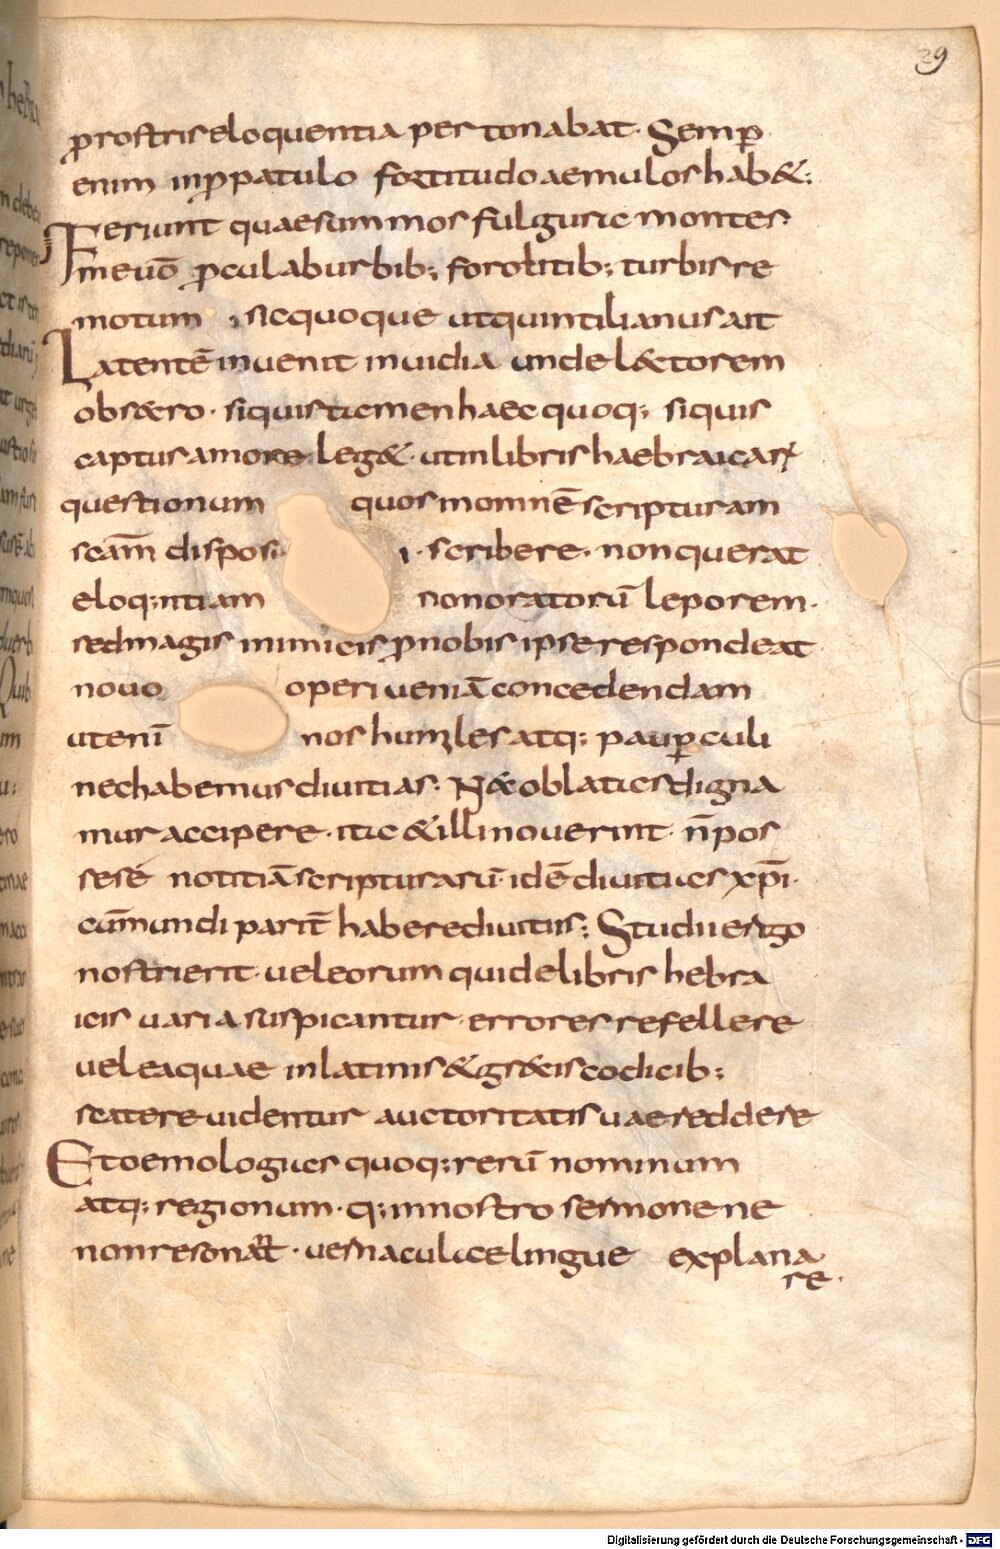 29
ꝓrostris eloquentia per tonabat. Semꝑ
enim inꝓpatulo fortitudo aemulos hab&;
Feriunt quae summos fulguric montes.
meuō ꝓcul aburbib; foro litib; turbis re
motum ; sic quoque ut quintilianus ait
Latentē inuenit inuidia unde l&torem
obs&ro. siquis ticmen haec quoq; siquis
captus amore leg&. ut in libris haebraicarū
questionum quos in omnē scripturam
scam̄ disposi i. scribere. non querat
eloq;ntiam non oratorū leporem.
sed magis inimicis ꝓ nobis ipse respondeat
nouo operi ueniā concedendam
ut enī nos humiles atq; pauꝑculi
nec habemus diuitias. N& oblatics digna
mur accipere. itic & illi nouerint n̄ pos
sese notitiā scripturarū. idē diuiticcs xp̄i.
cūm mundi parit̄ habere diuitiis; Studii ergo
nostri erit. uel eorum qui de libris hebra
icis uaria suspicantur. errores refellere
uel ea quae in latinis & gr&cis codicib;
scatere uidentur auctoritati suae reddere
Etoemologiccs quoq; rerū nominum
atq; regionum. q; in nostro sermone ne
non resonant. uernaculice lingue explana
re.
Digitalisierung gefördert durch die Deutsche Forschungsgemeinschaft - DFG